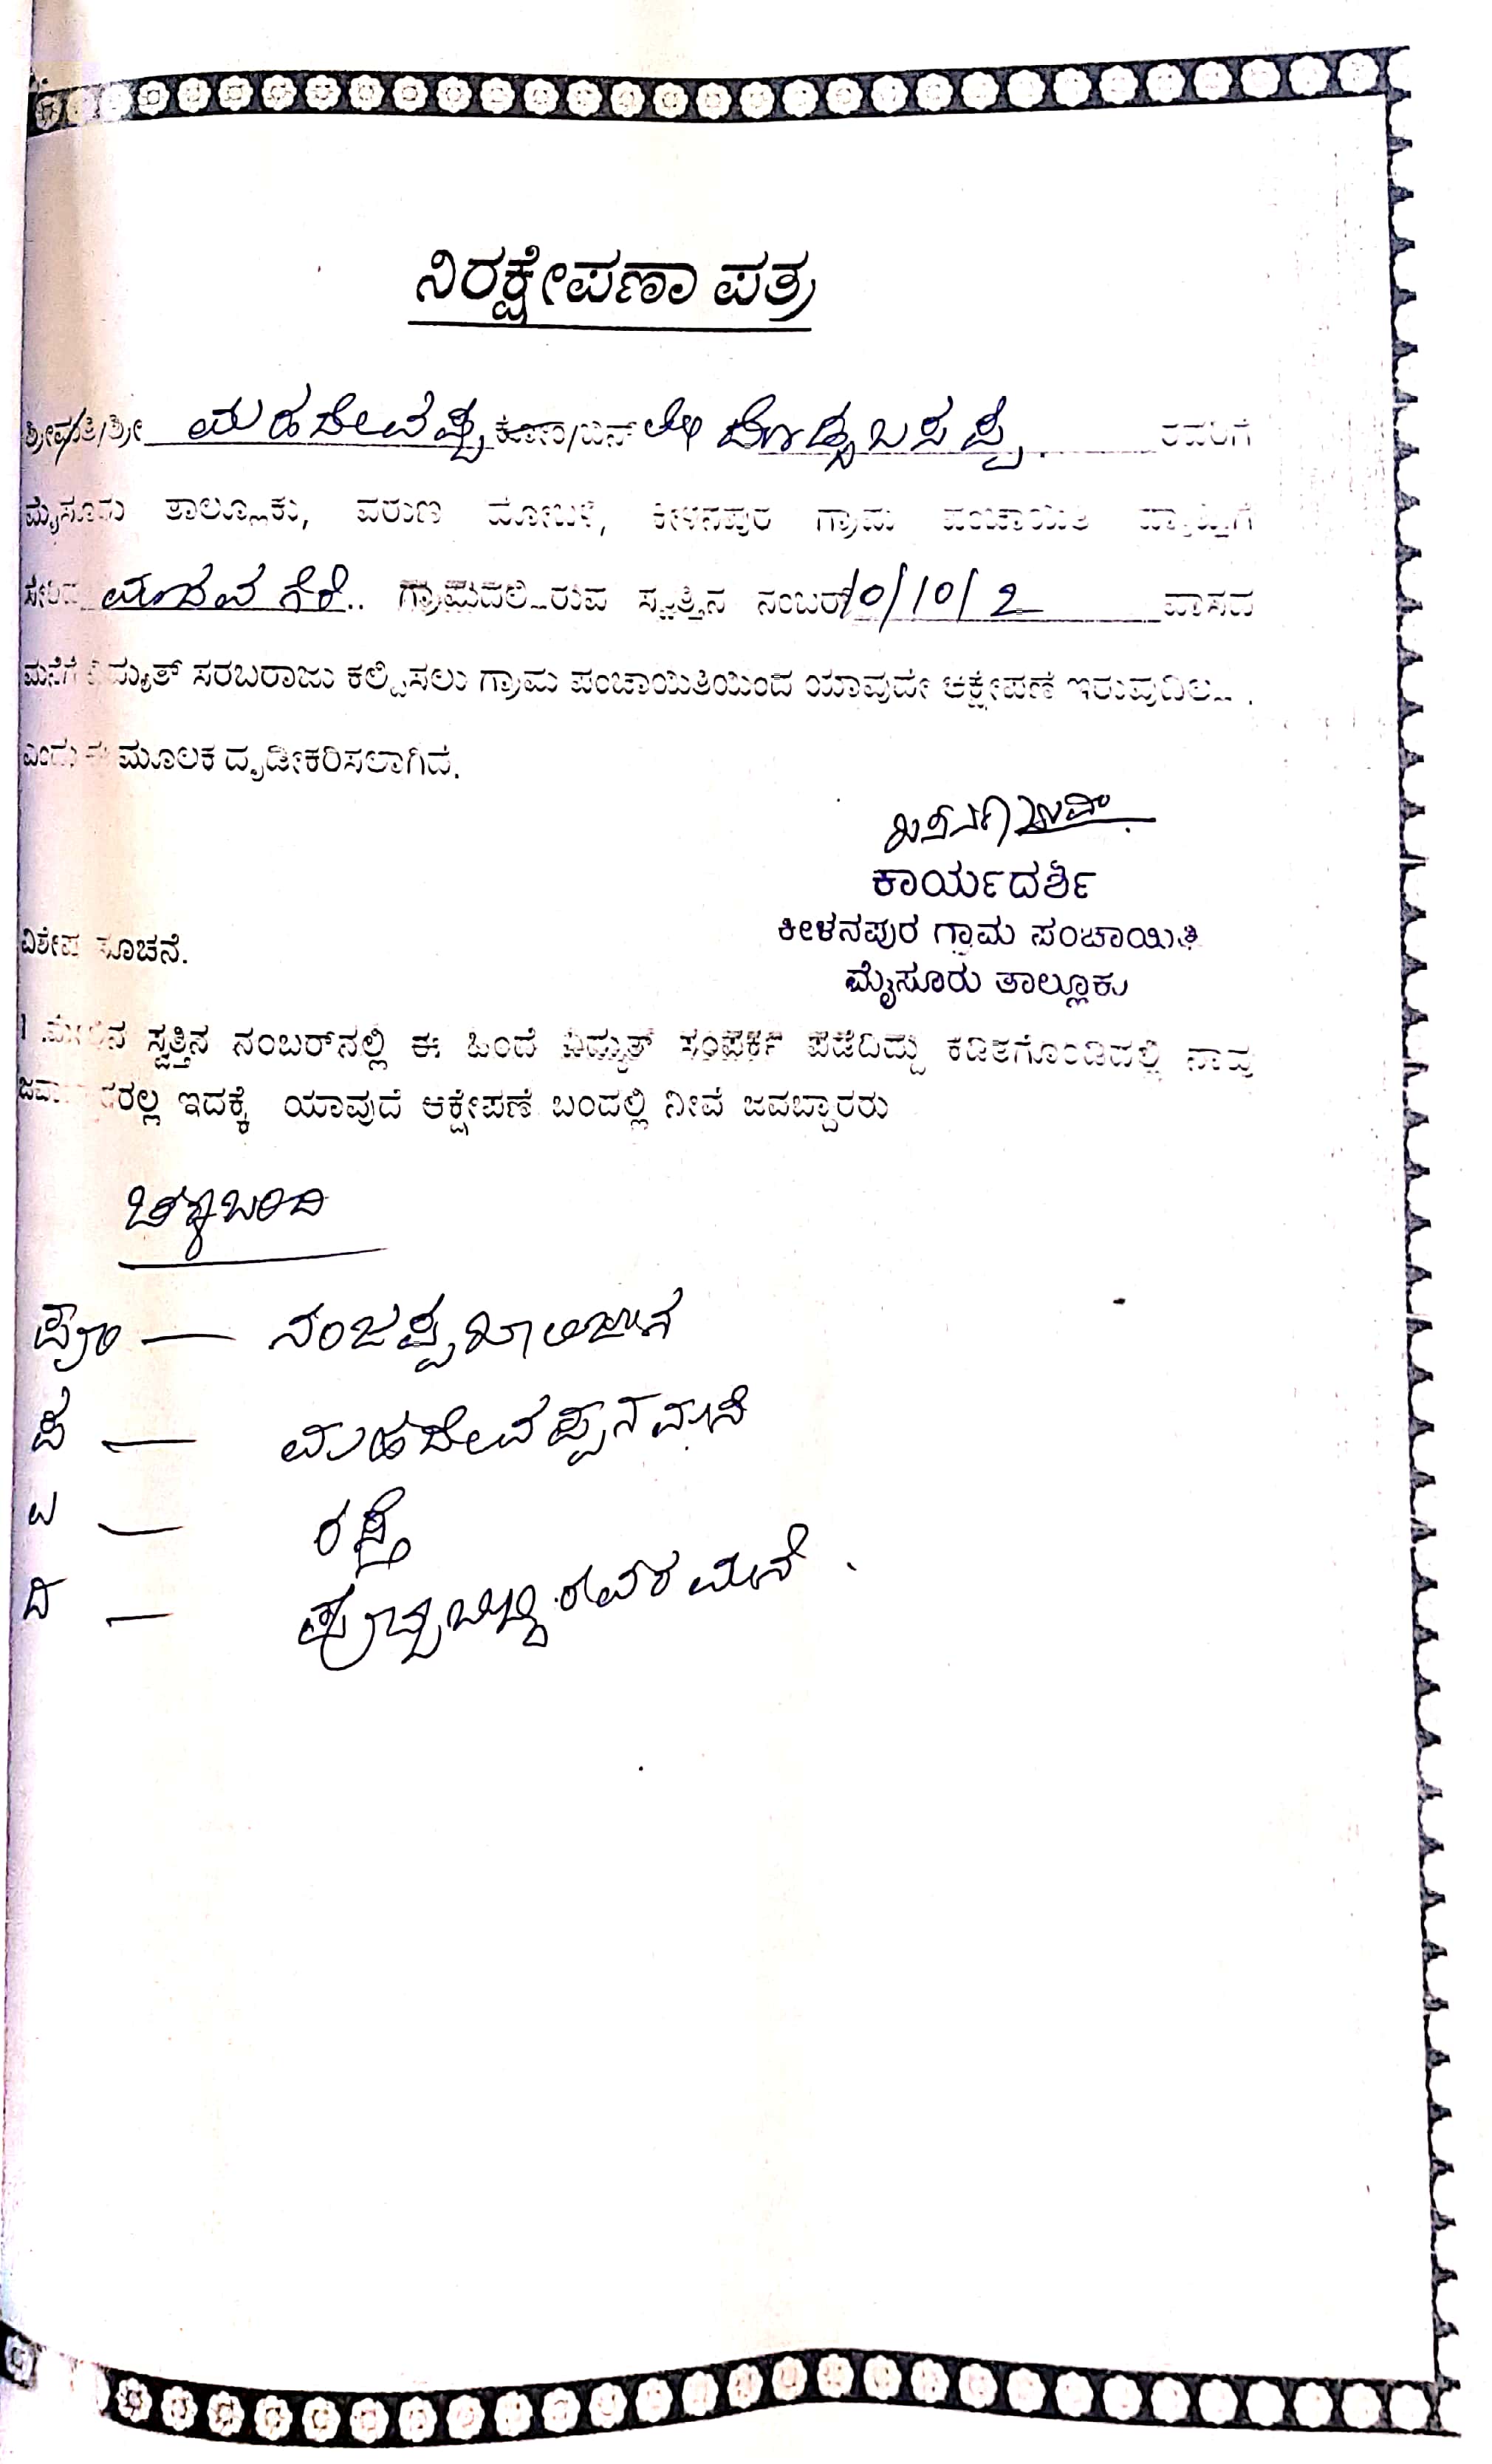 ನಿರಕ್ಷೇಪಣಾ ಪತ್ರ
ಶ್ರೀಮತಿ/ಶ್ರೀ ಮಹದೇವಪ್ಪ ಕೋಂ/ಬಿನ್ ಲೇ ದೊಡ್ಡಬಸಪ್ಪ. ರವರಿಗೆ
ಮೈಸೂರು ತಾಲ್ಲೂಕು, ವರುಣ ಹೋಬಳಿ, ಕೀಳನಪುರ ಗ್ರಾಮ ಪಂಚಾಯಿತಿ ವ್ಯಾಪ್ತಿಗೆ
ಸೇರಿದ ಮಾದವಗೆರೆ.. ಗ್ರಾಮದಲ್ಲಿರುವ ಸ್ವತ್ತಿನ ನಂಬರ್ 10/10/2 ವಾಸದ
ಮನೆಗೆ ವಿದ್ಯುತ್ ಸರಬರಾಜು ಕಲ್ಪಿಸಲು ಗ್ರಾಮ ಪಂಚಾಯಿತಿಯಿಂದ ಯಾವುದೇ ಆಕ್ಷೇಪಣೆ ಇರುವುದಿಲ್ಲ.
ಎಂದು ಈ ಮೂಲಕ ದೃಡೀಕರಿಸಲಾಗಿದೆ.
ಕಾರ್ಯದರ್ಶಿ
ಕೀಳನಪುರ ಗ್ರಾಮ ಪಂಚಾಯಿತಿ
ಮೈಸೂರು ತಾಲ್ಲೂಕು
ವಿಶೇಷ ಸೂಚನೆ.
1 ಮೇಲಿನ ಸ್ವತ್ತಿನ ನಂಬರ್‌ನಲ್ಲಿ ಈ ಹಿಂದೆ ವಿದ್ಯುತ್ ಸಂಪರ್ಕ ಪಡೆದಿದ್ದು ಕಡಿತಗೊಂಡಿದಲ್ಲಿ ನಾವು
ಜವಾಬ್ದಾರರಲ್ಲ ಇದಕ್ಕೆ ಯಾವುದೆ ಆಕ್ಷೇಪಣೆ ಬಂದಲ್ಲಿ ನೀವೆ ಜವಬ್ದಾರರು
ಚಕ್ಕಬಂದಿ
ಪೂ — ನಂಜಪ್ಪ ಖಾಲಿಜಾಗ
ಪ — ಮಹದೇವಪ್ಪನ ಮನೆ
ಉ — ರಸ್ತೆ
ದ — ರವರ ಮನೆ.